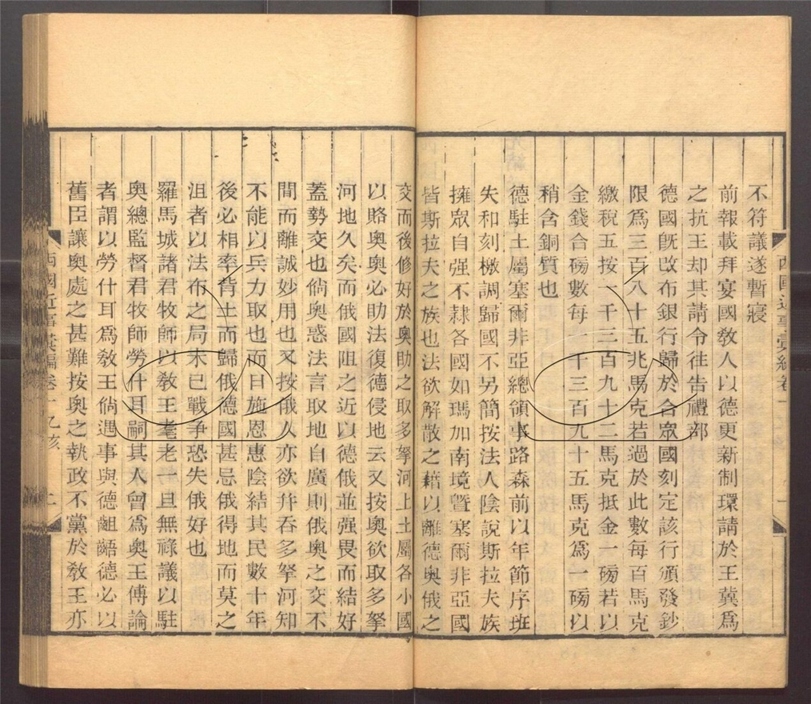 不符議遂暫寢
前報載拜宴國敎人以德更新制環請於王冀爲
之抗王却其請令往告禮部
德國旣改布銀行歸於合眾國刻定該行頒發鈔
限爲三百八十五兆馬克若過於此數每百馬克
繳稅五按一千三百九十二馬克抵金一磅若以
金錢合磅數每一千三百九十五馬克爲一磅以
稍含銅質也
德駐土屬塞爾非亞總領事路森前以年節序班
失和刻檄調歸國不另簡按法人陰說斯拉夫族
擁眾自强不隸各國如瑪加南境曁塞爾非亞國
皆斯拉夫之族也法欲解散之藉以離德奧俄之
交而後修好於奧助之取多拏河上土屬各小國
以賂奧奧必助法復德侵地云又按奧欲取多拏
河地久矣而俄國阻之近以德俄並强畏而結好
蓋勢交也倘奧惑法言取地自廣則俄奧之交不
間而離誠妙用也又按俄人亦欲幷吞多拏河知
不能以兵力取也而日施恩惠陰結其民數十年
後必相率背土而歸俄德國甚忌俄得地而莫之
沮者以法布之局未已戰爭恐失俄好也
羅馬城諸君牧師以敎王耄老一旦無祿議以駐
奧總監督君牧師勞什耳嗣其人曾爲奧王傅論
者謂以勞什耳爲敎王倘遇事與德齟齬德必以
舊臣讓奧處之甚難按奧之執政不黨於敎王亦
西國近事彙編卷一 乙亥 二